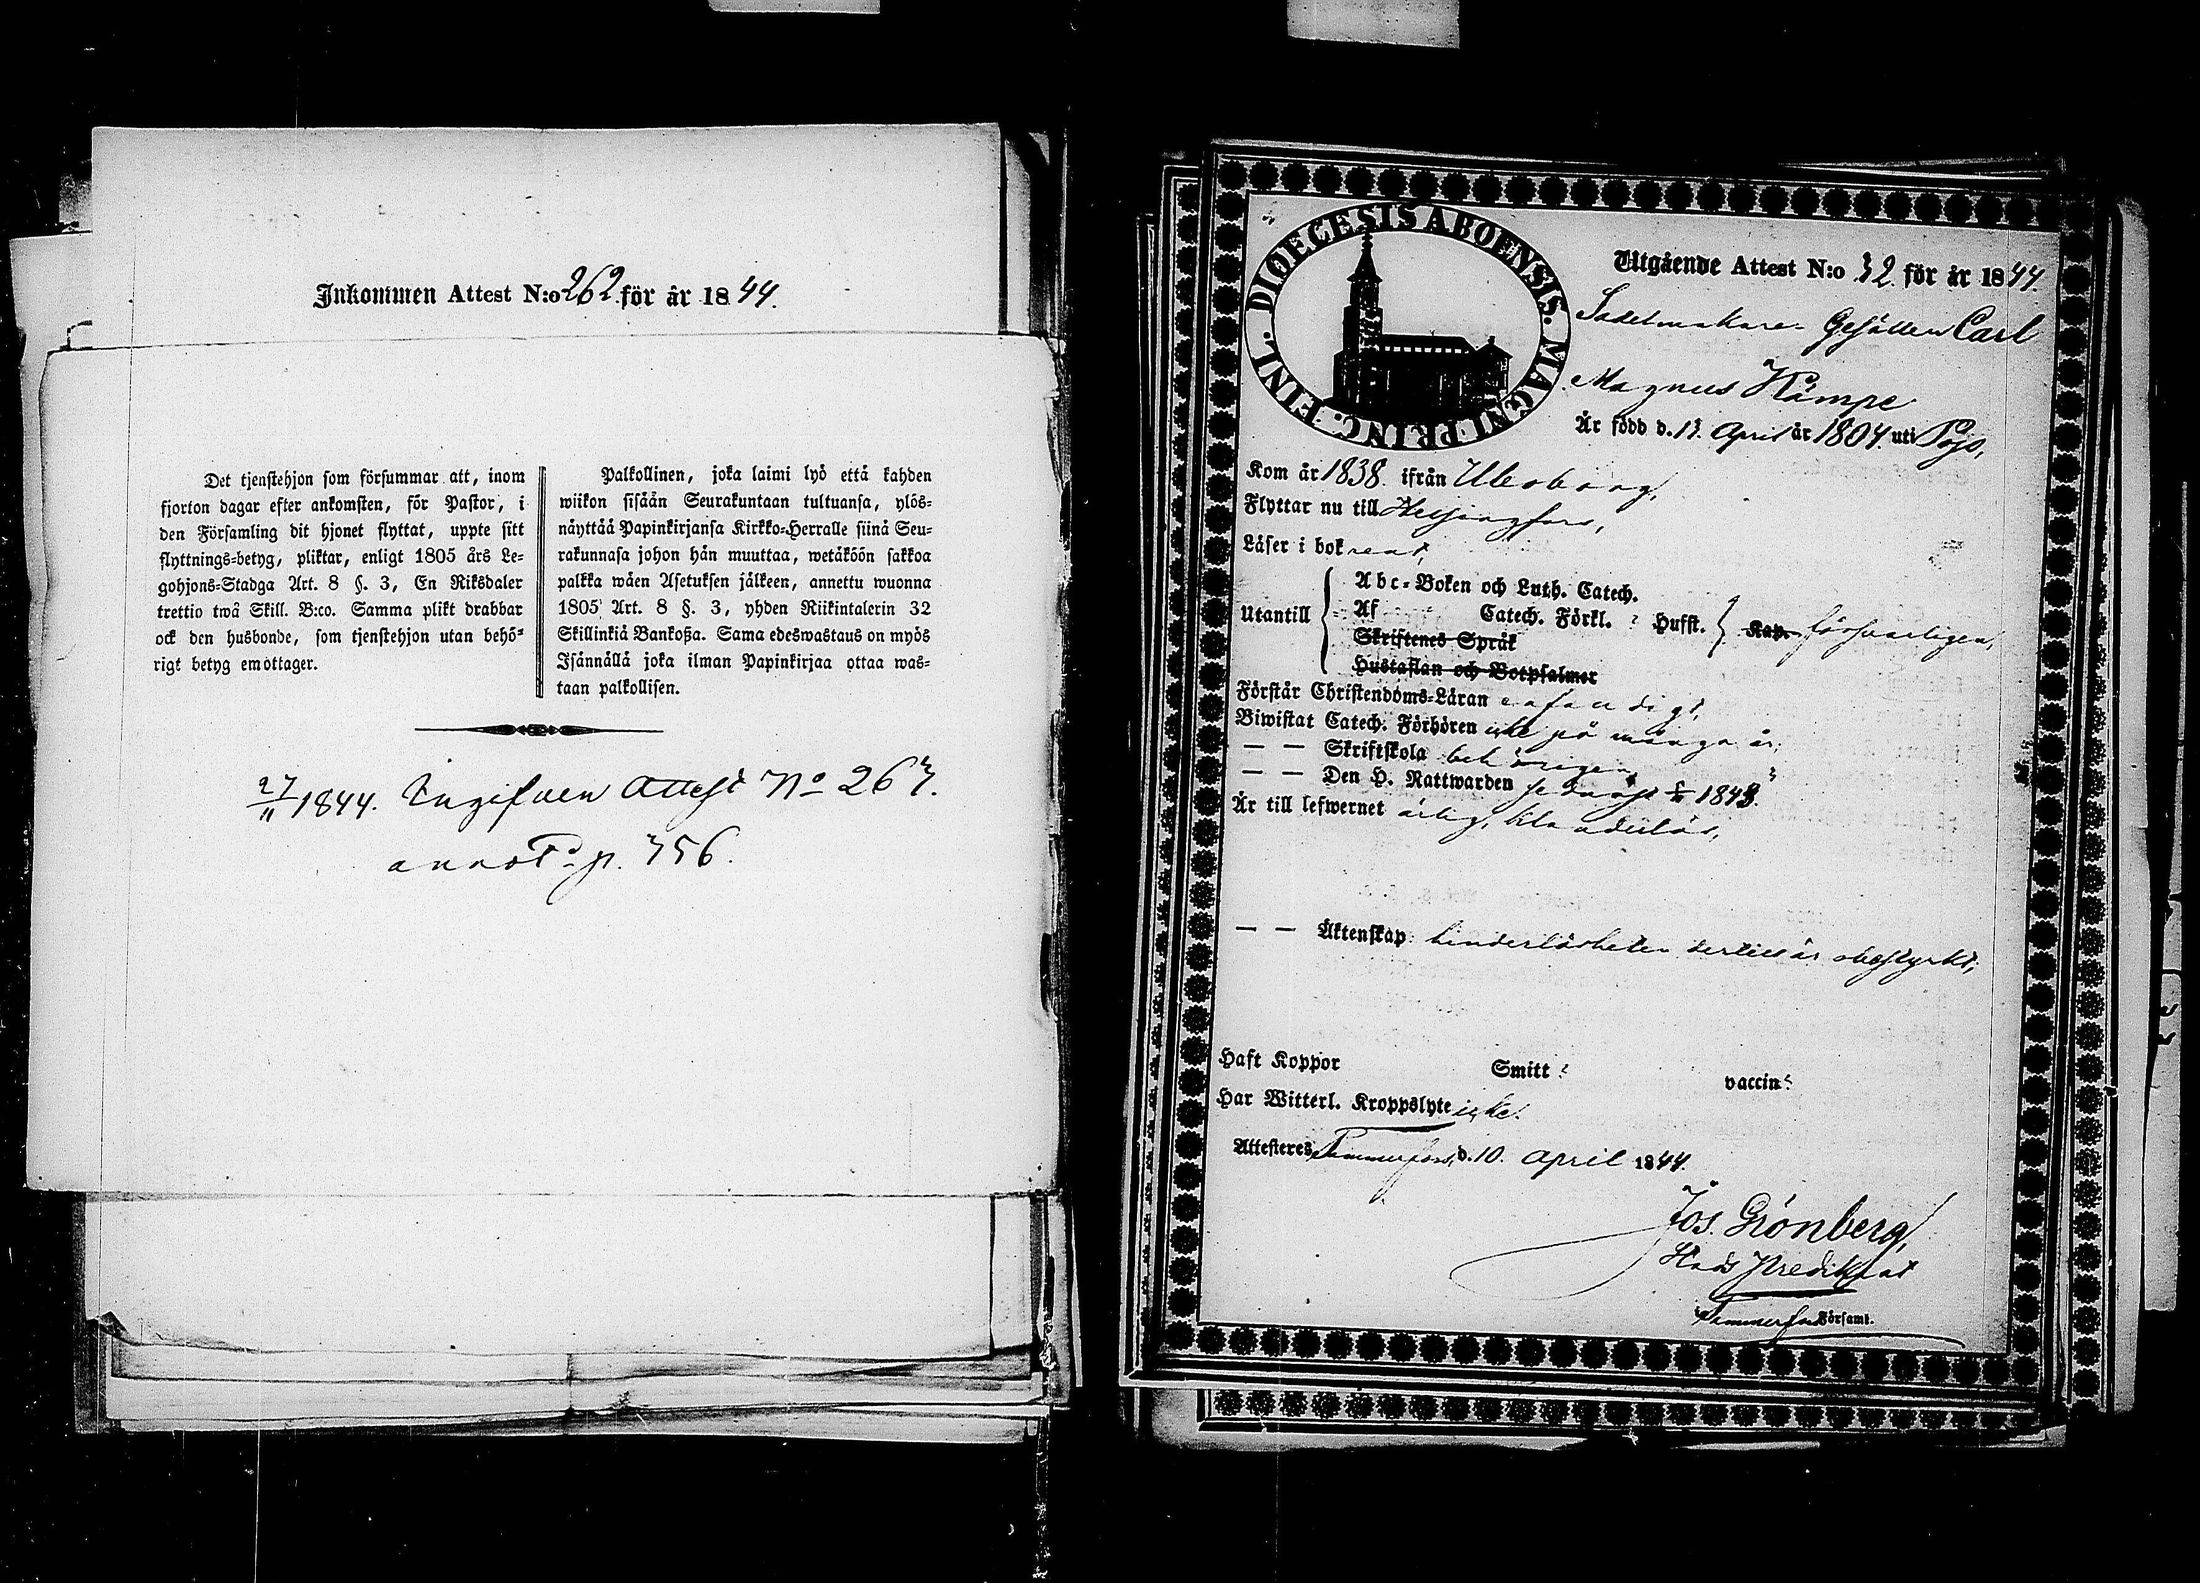 Inkommen Attest N:o 262 för år 1844.
Det tjenstehjon som försummar att, inom
fjorton dagar efter ankomsten, för Pastor, i
den Församling dit hjonet flyttat, uppte sitt
flyttnings-betyg, pliktar, enligt 1805 års Le-
gohjons-Stadga Art. 8 §. 3, En Riksdaler
trettio twå Skill. B:co. Samma plikt drabbar
ock den husbonde, som tjenstehjon utan behö-
rigt betyg emottager.
Palkollinen, joka laimi lyö että kahden
wiikon sisään Seurakuntaan tultuansa, ylös-
näyttää Papinkirjansa Kirkko-Herralle siinä Seu-
rakunnasa johon hän muuttaa, wetäköön sakkoa
palkka wäen Asetuksen jälkeen, annettu wuonna
1805 Art. 8 §. 3, yhden Riikintalerin 32
Skillinkiä Bankoßa. Sama edeswastaus on myös
Isännällä joka ilman Papinkirjaa ottaa was-
taan palkollisen.
27/11 1844. Ingifven Attest No 267.
annot. p. 756.
DIOECESIS ABOENSIS. MAGNI PRINC. FINL.
Utgående Attest N:o 32 för år 1844.
Sadelmakare Gesällen Carl
Magnus Kämpe
Är född d. 13 April år 1804 uti Pojo,
Kom år 1838 ifrån Uleåborg,
Flyttar nu till Helsingfors,
Läser i bok rent,
Utantill Abc-Boken och Luth. Catech.
Af Catech. Förkl. Husst. Kap. försvarligen,
Skriftenes Språk
Hustaflan och Botpsalmer
Förstår Christendoms-Läran enfaldigt,
Biwistat Catech. Förhören icke på många år,
— — Skriftskola behörigen,
— — Den H. Nattwarden sednast 1843.
Är till lefwernet ärlig, klanderlös,
— — Äktenskap hinderlösheten dertill är obestyrkt,
Haft Koppor Smitt vaccin
Har Witterl. Kroppslyte icke.
Attesteres Tammerfors, d. 10 April 1844.
Jos. Grönberg,
Stads Predikant
Tammerfors Församl.